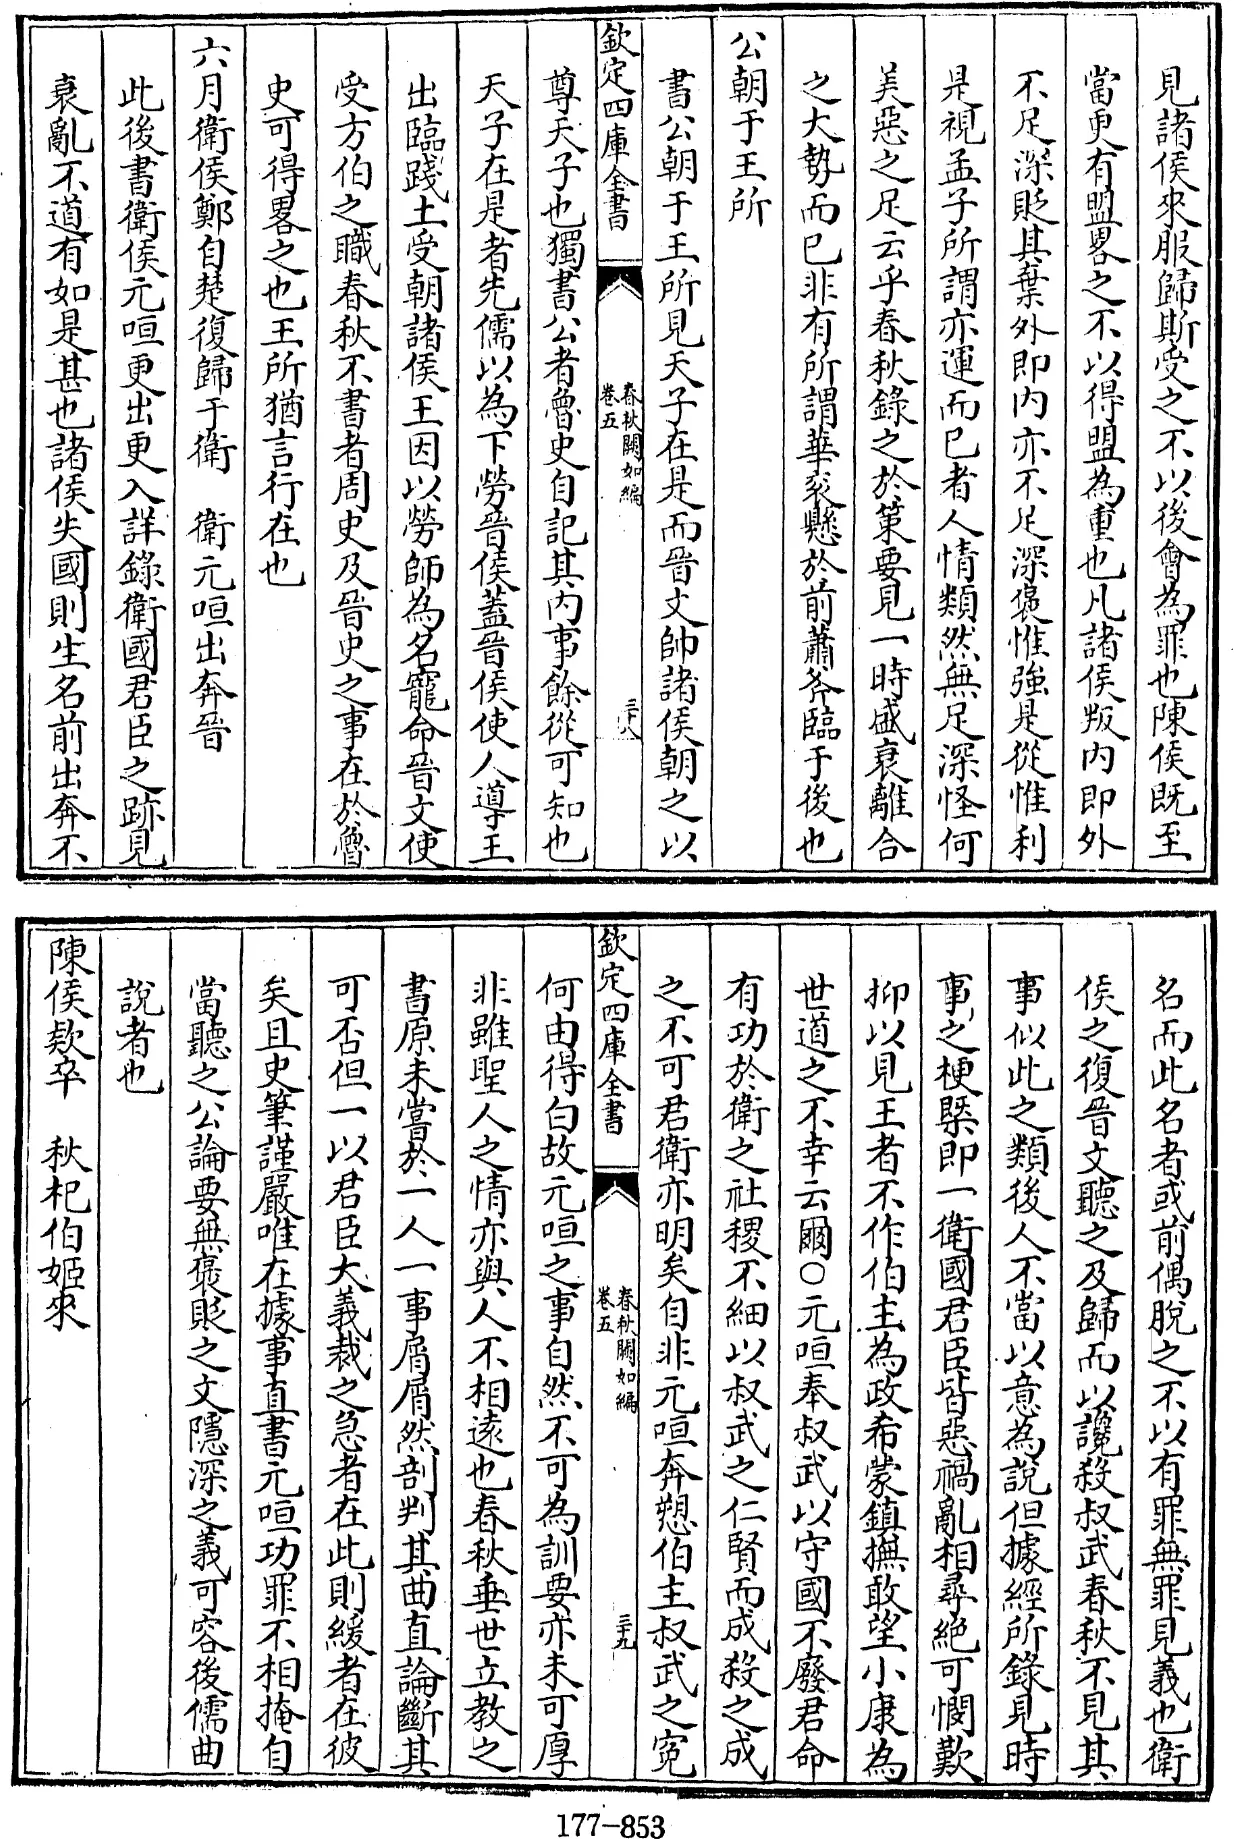 見諸侯來服歸斯受之不以後會為罪也陳侯既至
當更有盟畧之不以得盟為重也凡諸侯叛内即外
不足深貶其棄外即内亦不足深褒惟強是從惟利
是視孟子所謂亦運而已者人情類然無足深怪何
美惡之足云乎春秋錄之於策要見一時盛衰離合
之大勢而已非有所謂華衮懸於前蕭斧臨于後也
公朝于王所
書公朝于王所見天子在是而晉文帥諸侯朝之以
欽定四庫全書
春秋闕如編
卷五
三十八
尊天子也獨書公者魯史自記其内事餘從可知也
天子在是者先儒以為下勞晉侯蓋晉侯使人導王
出臨踐土受朝諸侯王因以勞師為名寵命晉文使
受方伯之職春秋不書者周史及晉史之事在於魯
史可得畧之也王所猶言行在也
六月衛侯鄭自楚復歸于衛　衛元咺出奔晉
此後書衛侯元咺更出更入詳錄衛國君臣之跡見
衰亂不道有如是甚也諸侯失國則生名前出奔不
名而此名者或前偶脫之不以有罪無罪見義也衛
侯之復晉文聽之及歸而以讒殺叔武春秋不見其
事似此之類後人不當以意為說但據經所錄見時
事之梗槩即一衛國君臣皆惡禍亂相尋絶可憫歎
抑以見王者不作伯主為政希蒙鎮撫敢望小康為
世道之不幸云爾○元咺奉叔武以守國不廢君命
有功於衛之社稷不細以叔武之仁賢而成殺之成
之不可君衛亦明矣自非元咺奔愬伯主叔武之寃
欽定四庫全書
春秋闕如編
卷五
三十九
何由得白故元咺之事自然不可為訓要亦未可厚
非雖聖人之情亦與人不相遠也春秋垂世立教之
書原未嘗於一人一事屑屑然剖判其曲直論斷其
可否但一以君臣大義裁之急者在此則緩者在彼
矣且史筆謹嚴唯在據事直書元咺功罪不相掩自
當聽之公論要無褒貶之文隱深之義可容後儒曲
說者也
陳侯欵卒　秋杞伯姬來
177-853